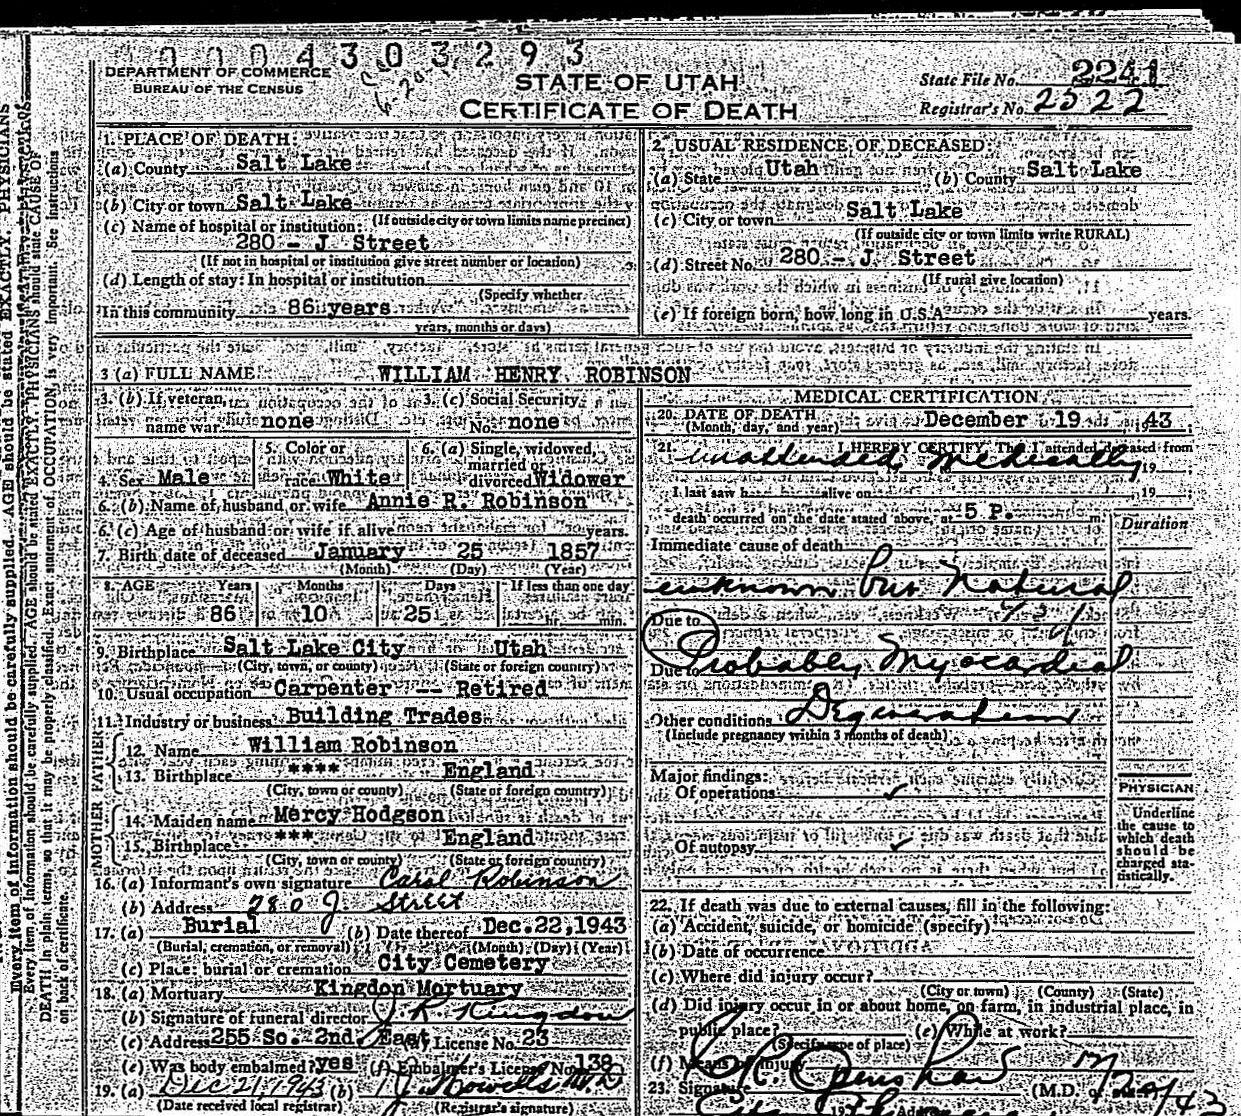 0004303293
DEPARTMENT OF COMMERCE
BUREAU OF THE CENSUS
STATE OF UTAH
CERTIFICATE OF DEATH
State File No. 2241
Registrar's No. 2522
1. PLACE OF DEATH:
(a) County Salt Lake
(b) City or town Salt Lake
(If outside city or town limits name precinct)
(c) Name of hospital or institution:
280 - J Street
(If not in hospital or institution give street number or location)
(d) Length of stay: In hospital or institution
(Specify whether
In this community 86 years
years, months or days)
2. USUAL RESIDENCE OF DECEASED:
(a) State Utah (b) County Salt Lake
(c) City or town Salt Lake
(If outside city or town limits write RURAL)
(d) Street No. 280 - J Street
(If rural give location)
(e) If foreign born, how long in U.S.A. years.
3 (a) FULL NAME WILLIAM HENRY ROBINSON
3. (b) If veteran, name war none
3. (c) Social Security No. none
4. Sex Male
5. Color or race White
6. (a) Single, widowed, married or divorced Widower
6. (b) Name of husband or wife Annie R. Robinson
6. (c) Age of husband or wife if alive years.
7. Birth date of deceased January 25 1857
(Month) (Day) (Year)
8. AGE Years Months Days If less than one day
86 10 25 hr. min.
9. Birthplace Salt Lake City Utah
(City, town, or county) (State or foreign country)
10. Usual occupation Carpenter -- Retired
11. Industry or business Building Trades
FATHER
12. Name William Robinson
13. Birthplace **** England
(City, town or county) (State or foreign country)
MOTHER
14. Maiden name Mercy Hodgson
15. Birthplace *** England
(City, town or county) (State or foreign country)
16. (a) Informant's own signature Carol Robinson
(b) Address 280 J Street
17. (a) Burial (b) Date thereof Dec. 22, 1943
(Burial, cremation, or removal) (Month) (Day) (Year)
(c) Place: burial or cremation City Cemetery
18. (a) Mortuary Kingdon Mortuary
(b) Signature of funeral director J. R. Kingdon
(c) Address 255 So. 2nd. East License No. 23
(e) Was body embalmed? yes (f) Embalmer's License No. 138
19. (a) Dec 21 1943 (b)
(Date received local registrar) (Registrar's signature)
MEDICAL CERTIFICATION
20. DATE OF DEATH December 19 1943
(Month, day, and year)
21. I HEREBY CERTIFY, That I attended deceased from
unattended medically 19
I last saw h alive on 19
death occurred on the date stated above, at 5 P. m.
Duration
Immediate cause of death
unknown but Natural
Due to
Probably Myocardial
Due to
Degeneration
Other conditions
(Include pregnancy within 3 months of death)
Major findings:
Of operations ✓
Of autopsy ✓
PHYSICIAN
Underline
the cause to
which death
should be
charged sta-
tistically.
22. If death was due to external causes, fill in the following:
(a) Accident, suicide, or homicide (specify)
(b) Date of occurrence
(c) Where did injury occur?
(City or town) (County) (State)
(d) Did injury occur in or about home, on farm, in industrial place, in
public place? (e) While at work?
(Specify type of place)
(f) Means of injury
23. Signature (M.D.
Every item of information should be carefully supplied. AGE should be stated EXACTLY. PHYSICIANS
Every item of information should be carefully supplied. AGE should be stated EXACTLY. PHYSICIANS should state CAUSE OF
DEATH in plain terms, so that it may be properly classified. Exact statement of OCCUPATION is very important. See instructions
on back of certificate.